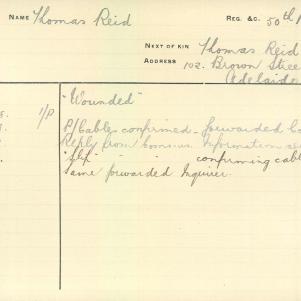 NAME Thomas Reid REG. &C. 50th
NEXT OF KIN Thomas Reid
ADDRESS 102. Brown Stree
Adelaide
"Wounded"
1/P P/Cable confirmed - forwarded
Reply from information
"slip" confirming cabl
Same forwarded Inquirer.